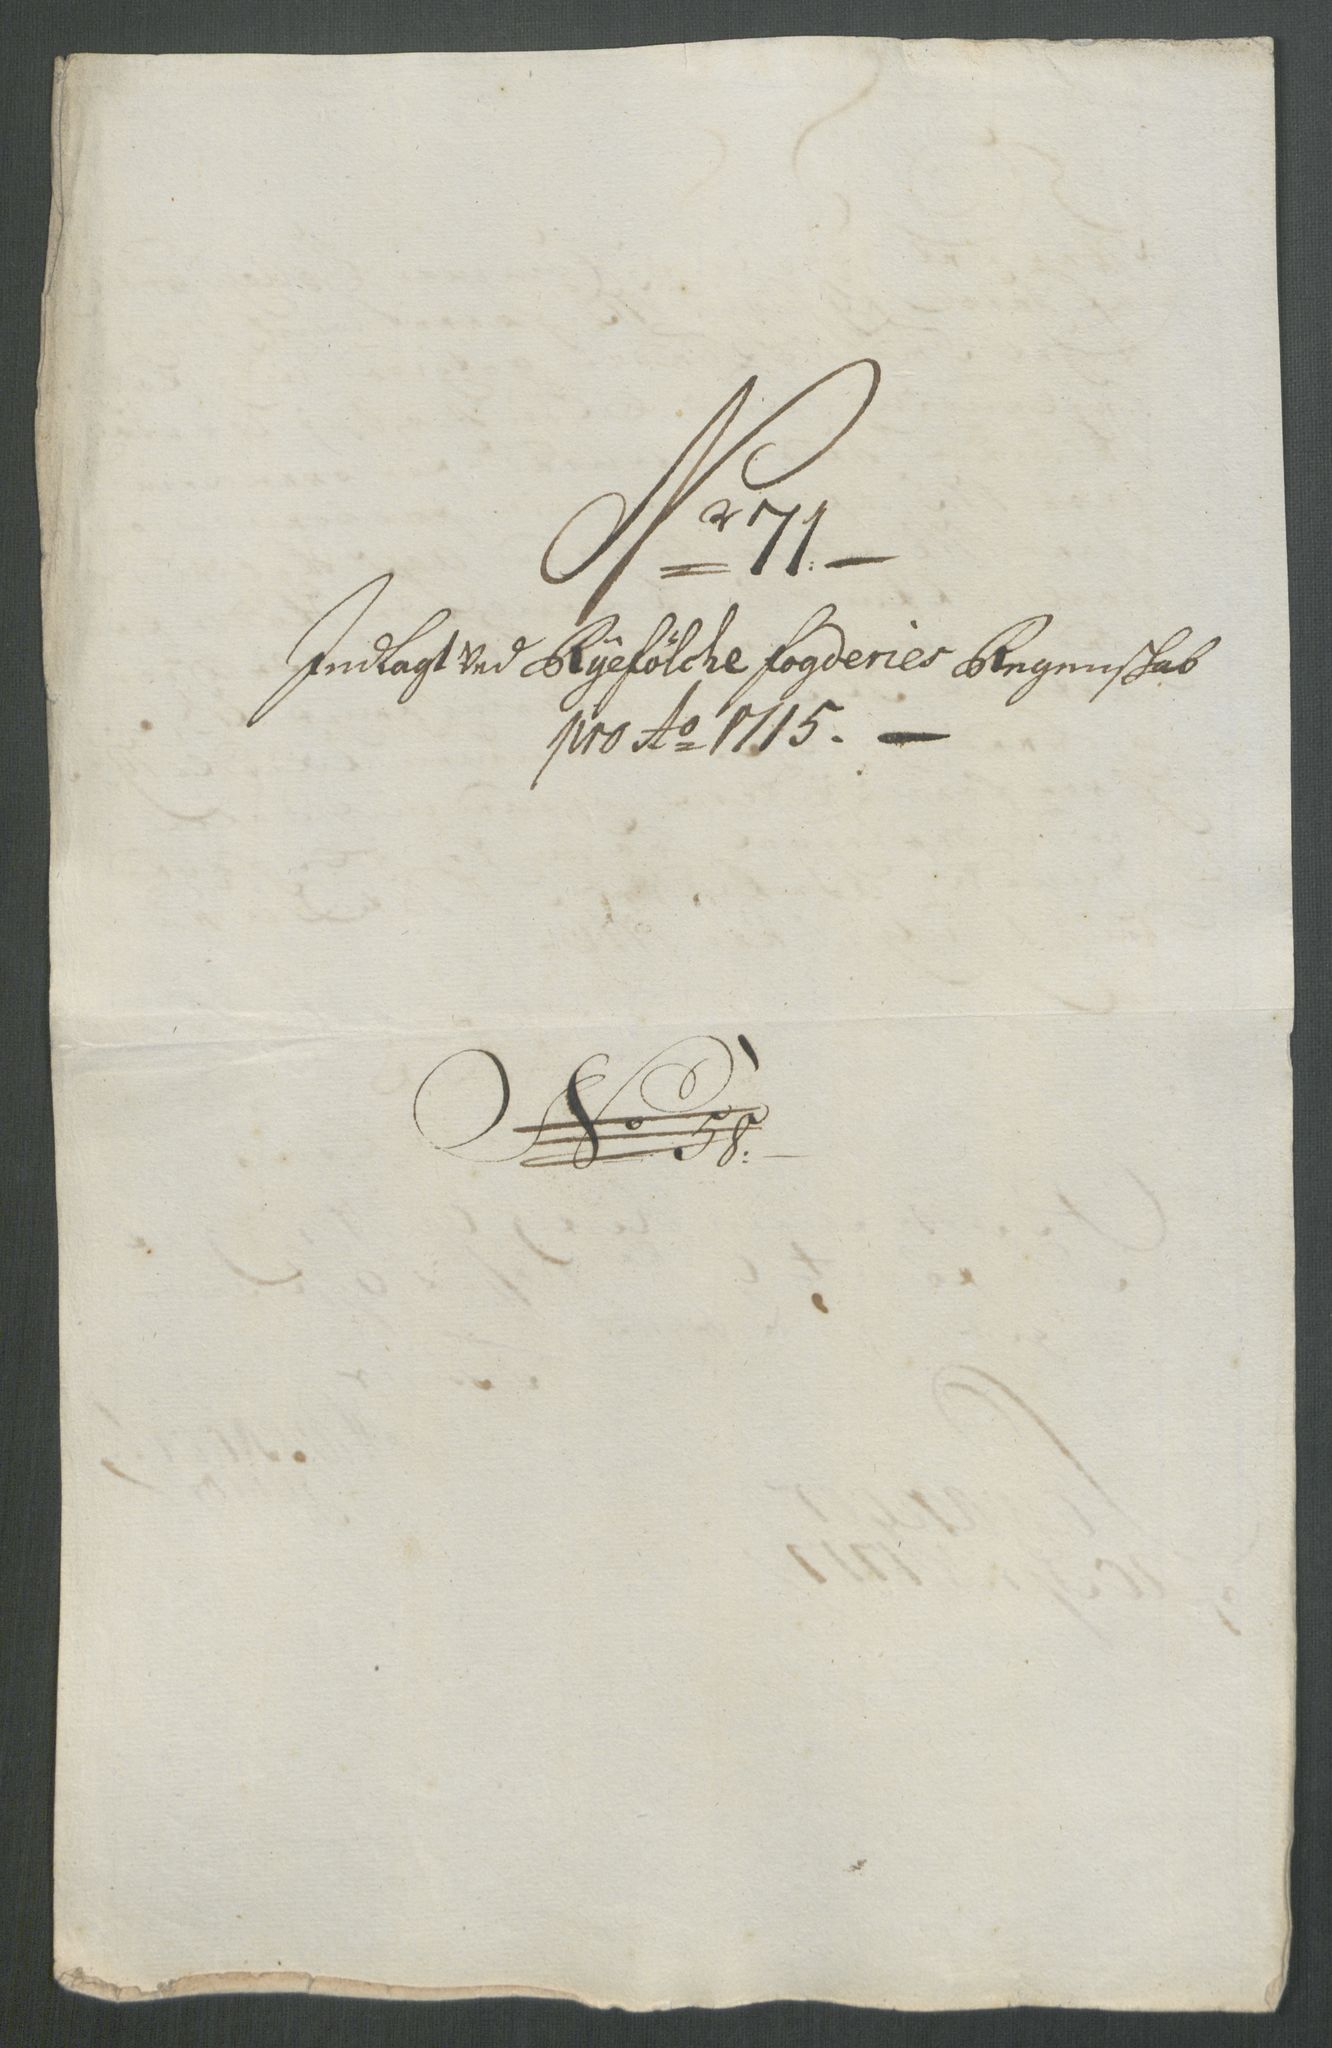 Nr 71. —
Indlagt Ved Ryefölche fogderies Regenschab
pro Ao 1715. —
No 58.